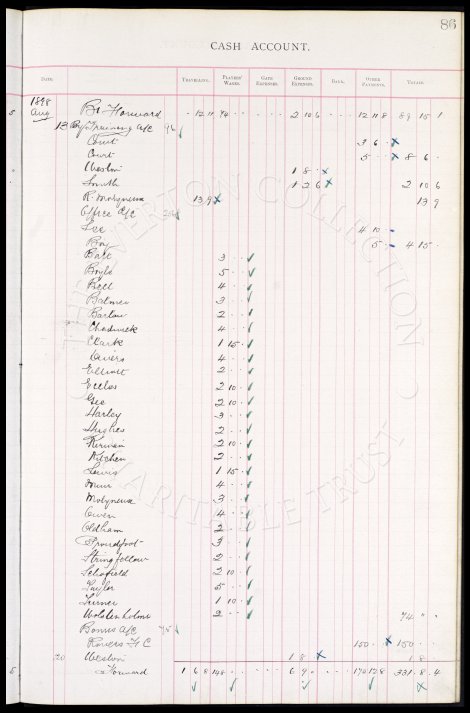 86
CASH ACCOUNT.
DATE. TRAVELLING. PLAYERS' WAGES. GATE EXPENSES. GROUND EXPENSES. OTHER PAYMENTS. TOTALS.
1898
Aug Bt Forward 12 11 74 2 10 6 12 11 8 89 15 1
13 By Training a/c 96
Court 3 6
Court 5 8 6
Weston 1 8
Smith 1 2 6 2 10 6
R. Molyneux 13 9 13 9
Office a/c
Lee 4 10
Boy 5 4 15
Balt 3
Boyle 5
Bell 4
Balmer 3
Barlow 2
Chadwick 4
Clark 1 15
Divers 4
Elliott 2
Eccles 2 10
Gee 2 10
Harley 3
Hughes 2
Kirwan 2 10
Kitchen 2
Lewis 1 15
Muir 4
Molyneux 3
Owen 4
Oldham 2
Proudfoot 3
Stringfellow 2
Schofield 2 10
Taylor 5
Turner 1 10
Wolstenholme 2 74
Bonus a/c 75
Rovers F C 150 150
20 Weston 1 8 1 8
Forward 1 6 8 148 6 9 175 12 8 331 8 4
THE EVERTON COLLECTION
CHARITABLE TRUST